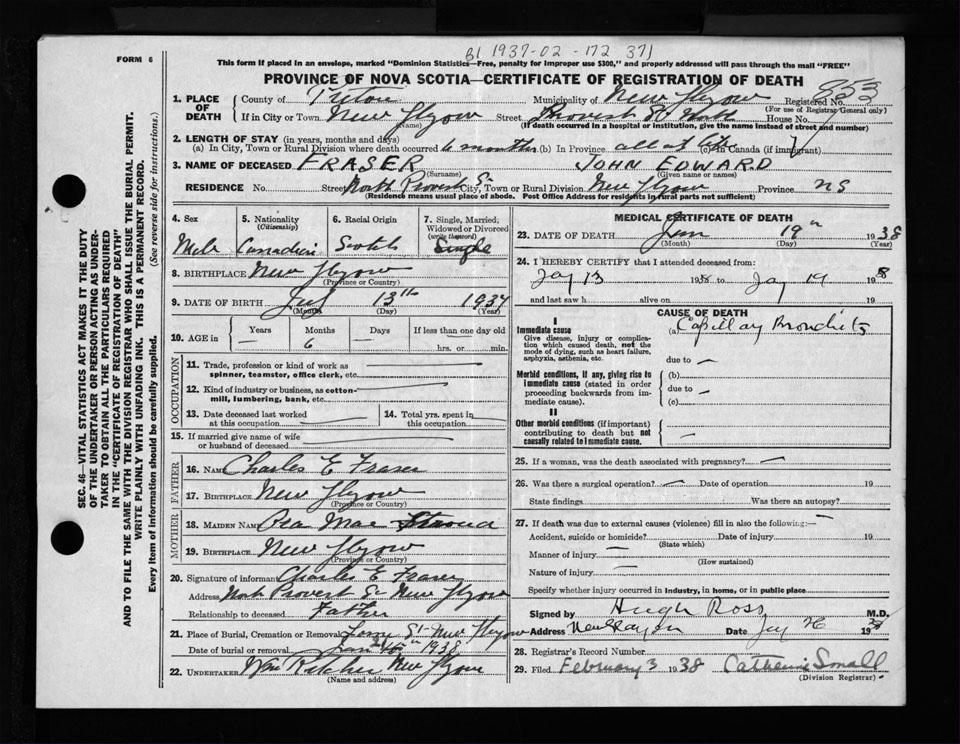 B1 1937-02-172 371
FORM 6
This form if placed in an envelope, marked "Dominion Statistics—Free, penalty for improper use $300," and properly addressed will pass through the mail "FREE"
PROVINCE OF NOVA SCOTIA—CERTIFICATE OF REGISTRATION OF DEATH
853
1. PLACE OF DEATH County of Municipality of New Registered No.
(For use of Registrar General only)
If in City or Town New (Name) Street Provost St North House No.
(If death occurred in a hospital or institution, give the name instead of street and number)
2. LENGTH OF STAY (in years, months and days)
(a) In City, Town or Rural Division where death occurred 6 months (b) In Province all of life (c) In Canada (if immigrant)
3. NAME OF DECEASED FRASER JOHN EDWARD
(Surname) (Given name or names)
RESIDENCE No. Street North Provost St City, Town or Rural Division New Province NS
(Residence means usual place of abode. Post Office Address for residents in rural parts not sufficient)
4. Sex 5. Nationality (Citizenship) 6. Racial Origin 7. Single, Married, Widowed or Divorced (write the word)
Male Canadian Scotch Single
8. BIRTHPLACE New
(Province or Country)
9. DATE OF BIRTH 13th 1937
(Month) (Day) (Year)
10. AGE in Years Months Days If less than one day old
— 6 — hrs. or min.
OCCUPATION
11. Trade, profession or kind of work as spinner, teamster, office clerk, etc.
12. Kind of industry or business, as cotton-mill, lumbering, bank, etc.
13. Date deceased last worked at this occupation
14. Total yrs. spent in this occupation
15. If married give name of wife or husband of deceased
FATHER
16. NAME Charles E Fraser
17. BIRTHPLACE New
(Province or Country)
MOTHER
18. MAIDEN NAME Mae
19. BIRTHPLACE New
(Province or Country)
20. Signature of informant Charles E Fraser
Address North Provost St New
Relationship to deceased Father
21. Place of Burial, Cremation or Removal St New
Date of burial or removal Jan 1938
22. UNDERTAKER Wm New
(Name and address)
MEDICAL CERTIFICATE OF DEATH
23. DATE OF DEATH Jan 19th 1938
(Month) (Day) (Year)
24. I HEREBY CERTIFY that I attended deceased from:
Jay 13 1938 to Jay 19 1938
and last saw h alive on 19
CAUSE OF DEATH
I
Immediate cause
Give disease, injury or complication which caused death, not the mode of dying, such as heart failure, asphyxia, asthenia, etc.
(a) Capillary Bronchitis
due to —
Morbid conditions, if any, giving rise to immediate cause (stated in order proceeding backwards from immediate cause).
(b)
due to —
(c)
II
Other morbid conditions (if important) contributing to death but not causally related to immediate cause.
—
25. If a woman, was the death associated with pregnancy? —
26. Was there a surgical operation? — Date of operation 19
State findings Was there an autopsy?
27. If death was due to external causes (violence) fill in also the following:—
Accident, suicide or homicide? Date of injury 19
(State which)
Manner of injury —
(How sustained)
Nature of injury —
Specify whether injury occurred in Industry, in home, or in public place
Signed by Hugh Ross M.D.
Address New Date Jay 26 19
28. Registrar's Record Number
29. Filed February 3 1938 Catherine Small
(Division Registrar)
SEC. 46—VITAL STATISTICS ACT MAKES IT THE DUTY
OF THE UNDERTAKER OR PERSON ACTING AS UNDER-
TAKER TO OBTAIN ALL THE PARTICULARS REQUIRED
IN THE "CERTIFICATE OF REGISTRATION OF DEATH"
AND TO FILE THE SAME WITH THE DIVISION REGISTRAR WHO SHALL ISSUE THE BURIAL PERMIT.
WRITE PLAINLY WITH UNFADING INK. THIS IS A PERMANENT RECORD.
Every item of information should be carefully supplied. (See reverse side for instructions.)